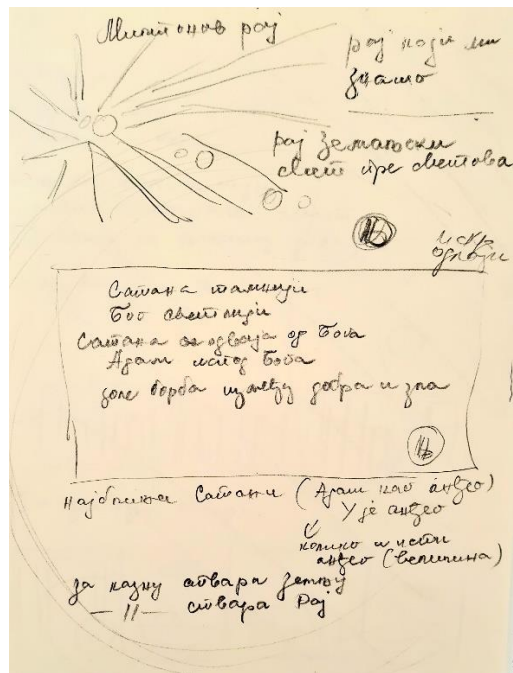 Милтонов рај
рај који ми
знамо
рај земаљски
свет пре светова
Сатана тамнији
Бог светлији
Сатана се одваја од Бога
Адам испод Бога
доле борба између добра и зла
Најближи Сатани (Адам као анђео)
У је анђео
колико и исти
анђео (величина)
за казну ствара земљу
— 11 — ствара Рај